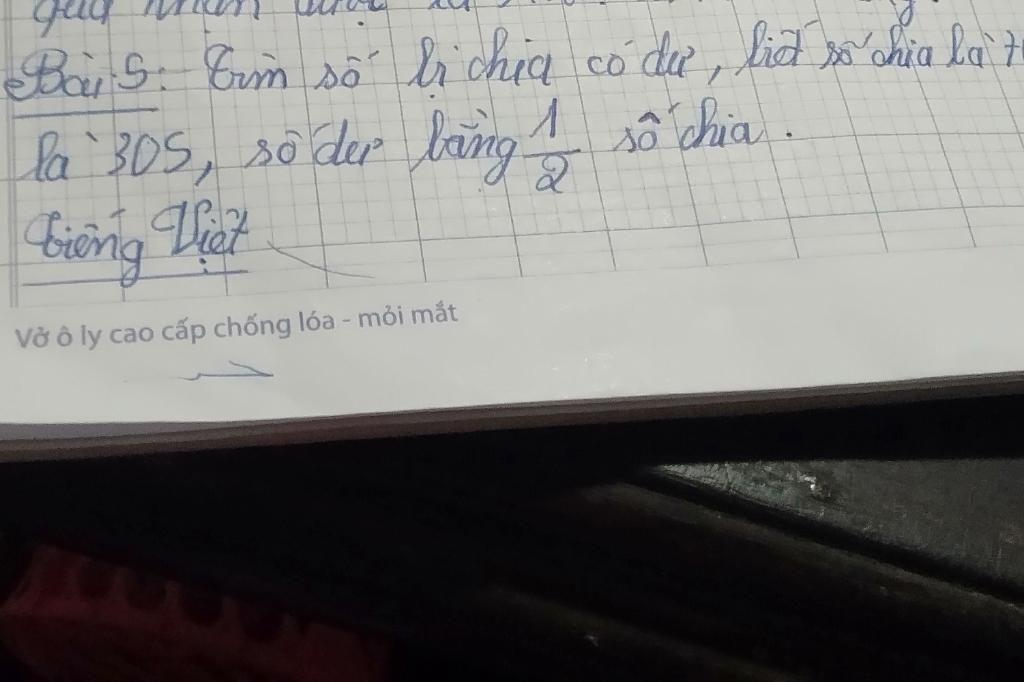 Bài 5: Tìm số bị chia có dư, biết số chia là
là 305, số dư bằng 1/2 số chia.
Tiếng Việt
Vở ô ly cao cấp chống lóa - mỏi mắt